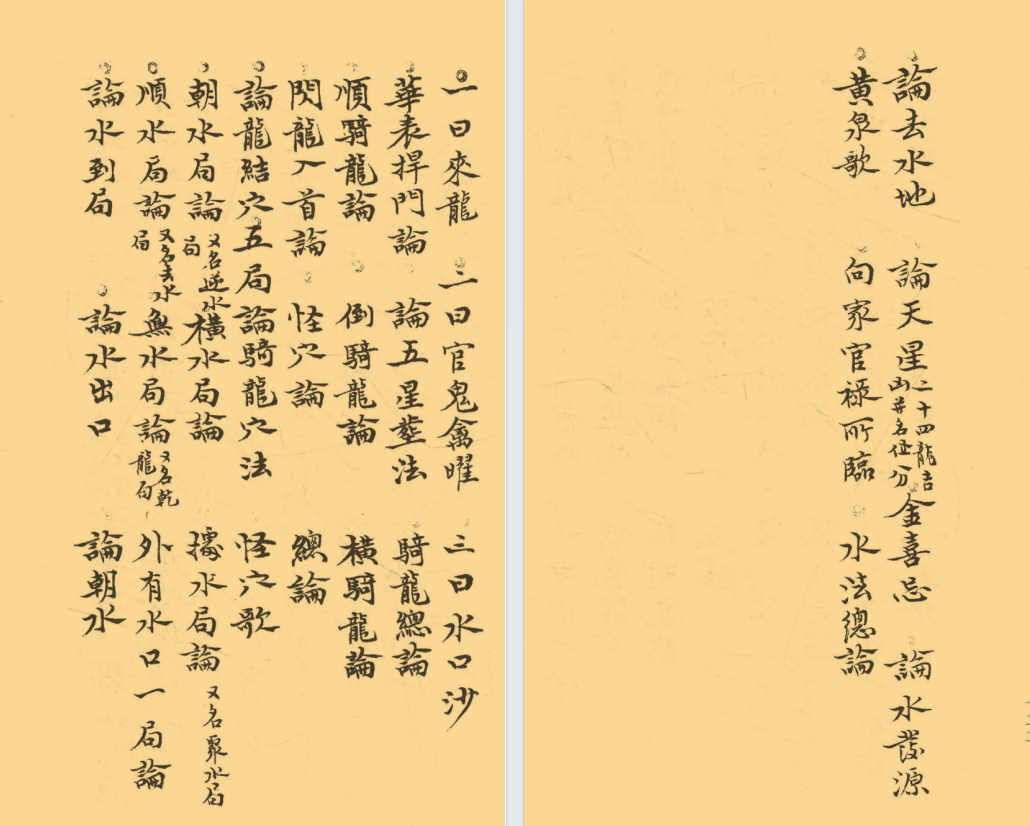 一曰來龍 二曰官鬼禽曜 三曰水口沙
華表捍門論 論五星塟法 騎龍總論
順騎龍論 倒騎龍論 橫騎龍論
閃龍入首論 怪穴論 總論
論龍結穴五局論騎龍穴法 怪穴歌
朝水局論 又名逆水局 橫水局論 據水局論 又名聚水局
順水局論 又名去水局 無水局論 又名乾龍局 外有水口一局論
論水到局 論水出口 論朝水
論去水地 論天星 二十四龍吉山并名位分金喜忌 論水發源
黄泉歌 向家官祿所臨 水法總論